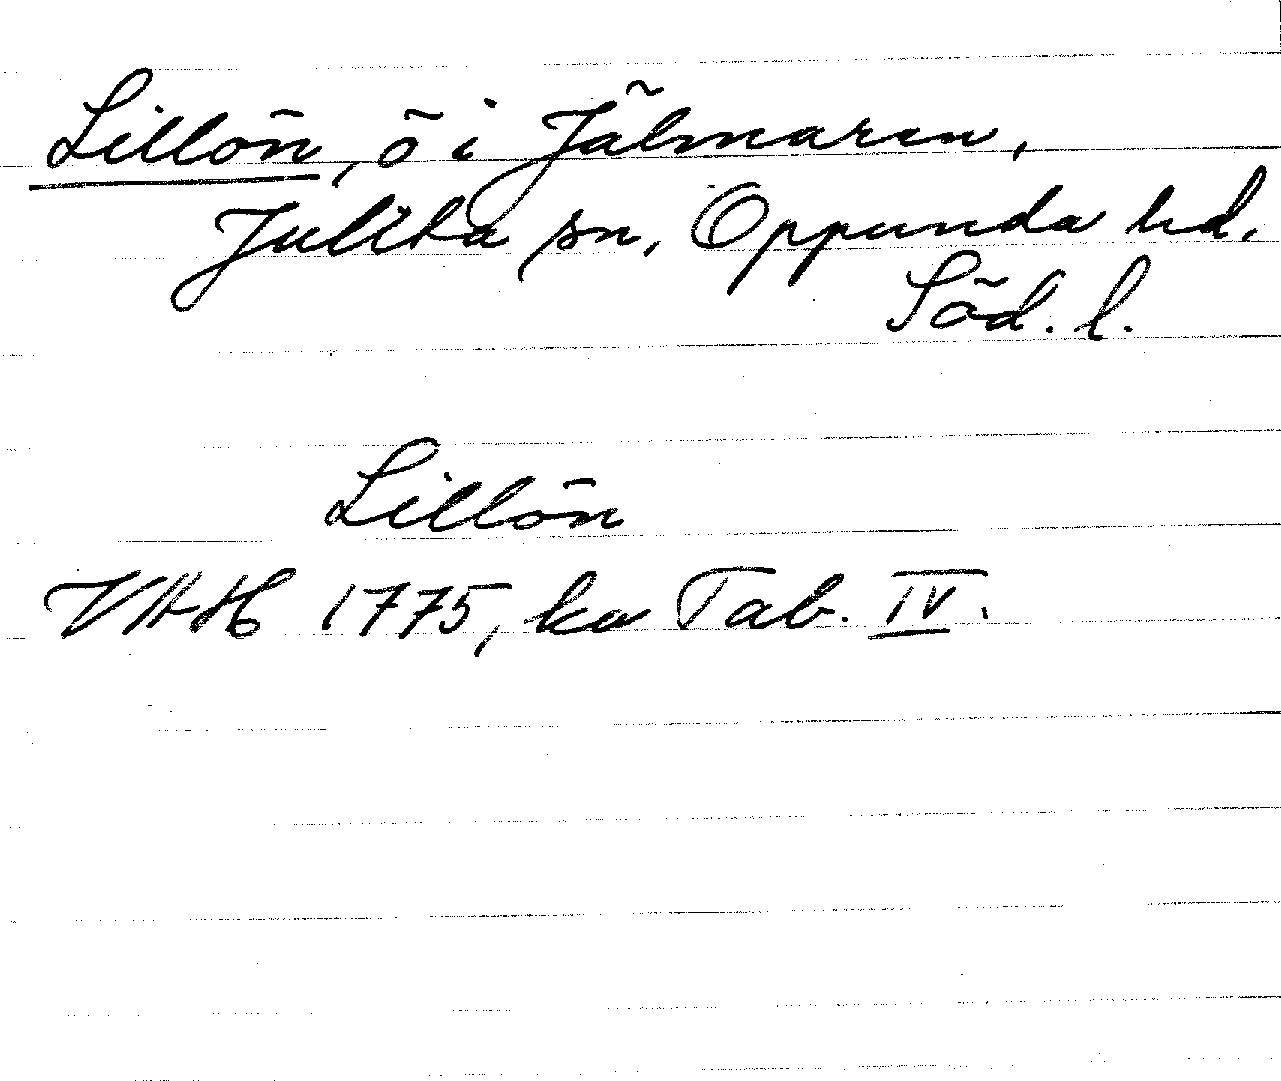 Lillön, ö i Jälmaren,
Julita sn, Oppunda hd.
Söd. l.
Lillön
VAH 1775, ka Tab. IV.